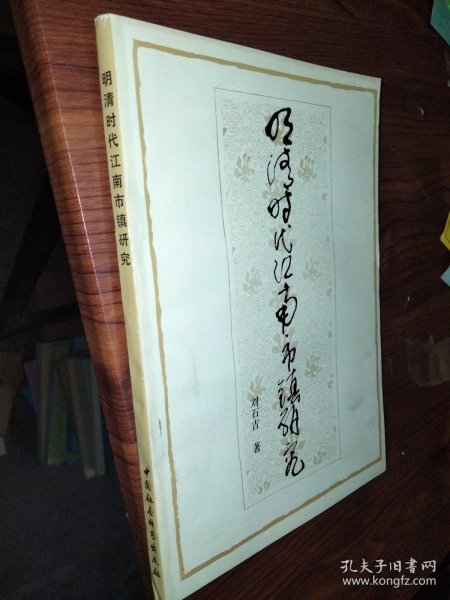 明清时代江南市镇研究
中国社会科学出版社
明清时代江南市镇研究
刘石吉 著
孔夫子旧书网
www.kongfz.com